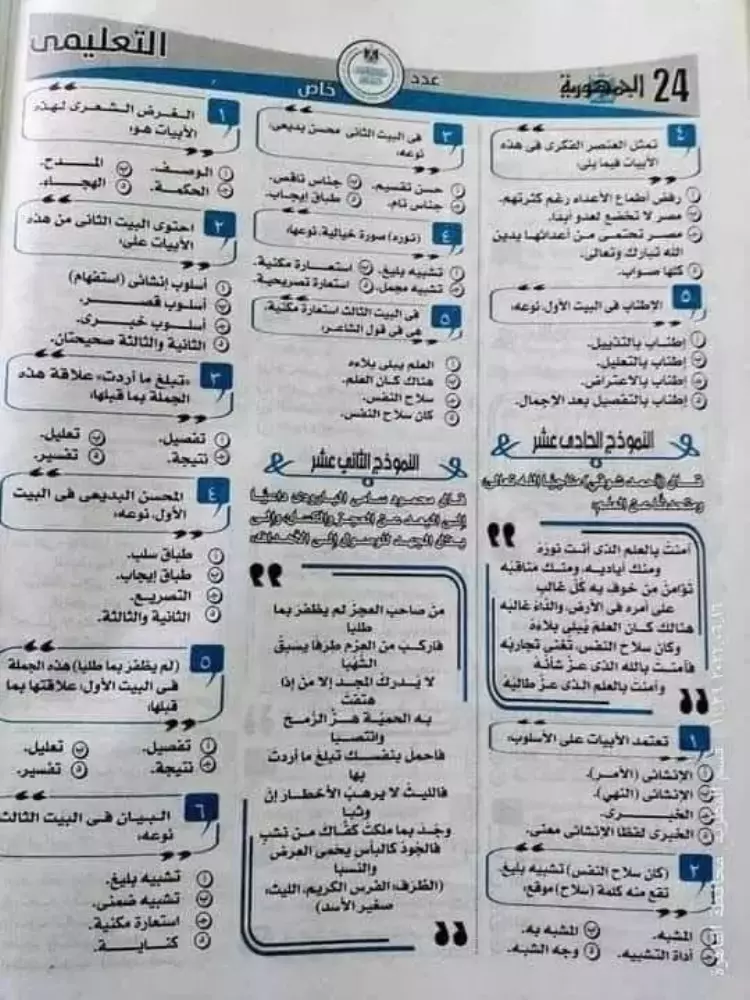 24 الجمهورية
عدد
خاص
التعليمى
٤ تمثل العنصر الفكرى فى هذه
الأبيات فيما يلى:
أ رفض أطماع الأعداء رغم كثرتهم.
ب مصر لا تخضع لعدو أبدا.
ج مصر تحتمى من أعدائها بدين
الله تبارك وتعالى.
د كلها صواب.
٥ الإطناب فى البيت الأول نوعه:
أ إطناب بالتذييل.
ب إطناب بالتعليل.
ج إطناب بالاعتراض.
د إطناب بالتفصيل بعد الإجمال.
النموذج الحادى عشر
قال (أحمد شوقي) مناجيًا الله تعالى
ومتحدثًا عن العلم:
آمنتُ بالعلم الذى أنت نورُهُ
ومنك أياديه، ومنك مناقبُه
تؤامنُ من خوف به كلُّ غالب
على أمره فى الأرض، والداءُ غالبُه
هنالك كان العلمُ يُبلى بلاءهُ
وكان سلاح النفس، تُغنى تجاربُه
فآمنتُ بالله الذى عزَّ شأنُه
وآمنتُ بالعلم الذى عزَّ طالبُه
١ تعتمد الأبيات على الأسلوب:
أ الإنشائى (الأمر).
ب الإنشائى (النهي).
ج الخبـرى.
د الخبرى لفظا الإنشائى معنى.
٢ (كان سلاح النفس) تشبيه بليغ
تقع منه كلمة (سلاح) موقع:
أ المشبه. ب المشبه به.
ج أداة التشبيه. د وجه الشبه.
٣ فى البيت الثانى محسن بديعى
نوعه:
أ حسن تقسيم. ب جناس ناقص.
ج جناس تام. د طباق إيجاب.
٤ (نوره) صورة خيالية نوعها:
أ تشبيه بليغ. ب استعارة مكنية.
ج تشبيه مجمل. د استعارة تصريحية.
٥ فى البيت الثالث استعارة مكنية
هى فى قول الشاعر:
أ العلم يبلى بلاءه
ب هنالك كان العلم.
ج سلاح النفس.
د كان سلاح النفس.
النموذج الثانى عشر
قال محمود سامى البارودى داعيًا
إلى البعد عن العجز والكسل، وإلى
بذل الجهد للوصول إلى الأهداف:
من صاحب العجزَ لم يظفر بما
طلبا
فاركب من العزم طرفًا يسبقُ
الشُّهُبا
لا يُدركُ المجد إلا من إذا
هتفتْ
به الحميّة هزَّ الرُّمحَ
وانتصبا
فاحمل بنفسك تبلغ ما أردتَ
بها
فالليثُ لا يرهبُ الأخطار إنْ
وثبا
وجُد بما ملكتْ كفّاك من نشبِ
فالجودُ كالبأس يحمى العرضَ
والنسبا
(الطّرف: الفرس الكريم، الليث:
صغير الأسد)
١ الغرض الشعرى لهذه
الأبيات هو:
أ الوصف. ب المدح.
ج الحكمة. د الهجاء.
٢ احتوى البيت الثانى من هذه
الأبيات على:
أ أسلوب إنشائى (استفهام)
ب أسلوب قصـر.
ج أسلوب خبـرى.
د الثانية والثالثة صحيحتان.
٣ «تبلغ ما أردت» علاقة هذه
الجملة بما قبلها:
أ تفصيل. ب تعليل.
ج نتيجة. د تفسير.
٤ المحسن البديعى فى البيت
الأول، نوعه:
أ طباق سلب.
ب طباق إيجاب.
ج التصريع.
د الثانية والثالثة.
٥ (لم يظفر بما طلبا) هذه الجملة
فى البيت الأول: علاقتها بما
قبلها:
أ تفصيل. ب تعليل.
ج نتيجة. د تفسير.
٦ البيان فى البيت الثالث
نوعه:
أ تشبيه بليغ.
ب تشبيه ضمنى.
ج استعارة مكنية.
د كنايـة.